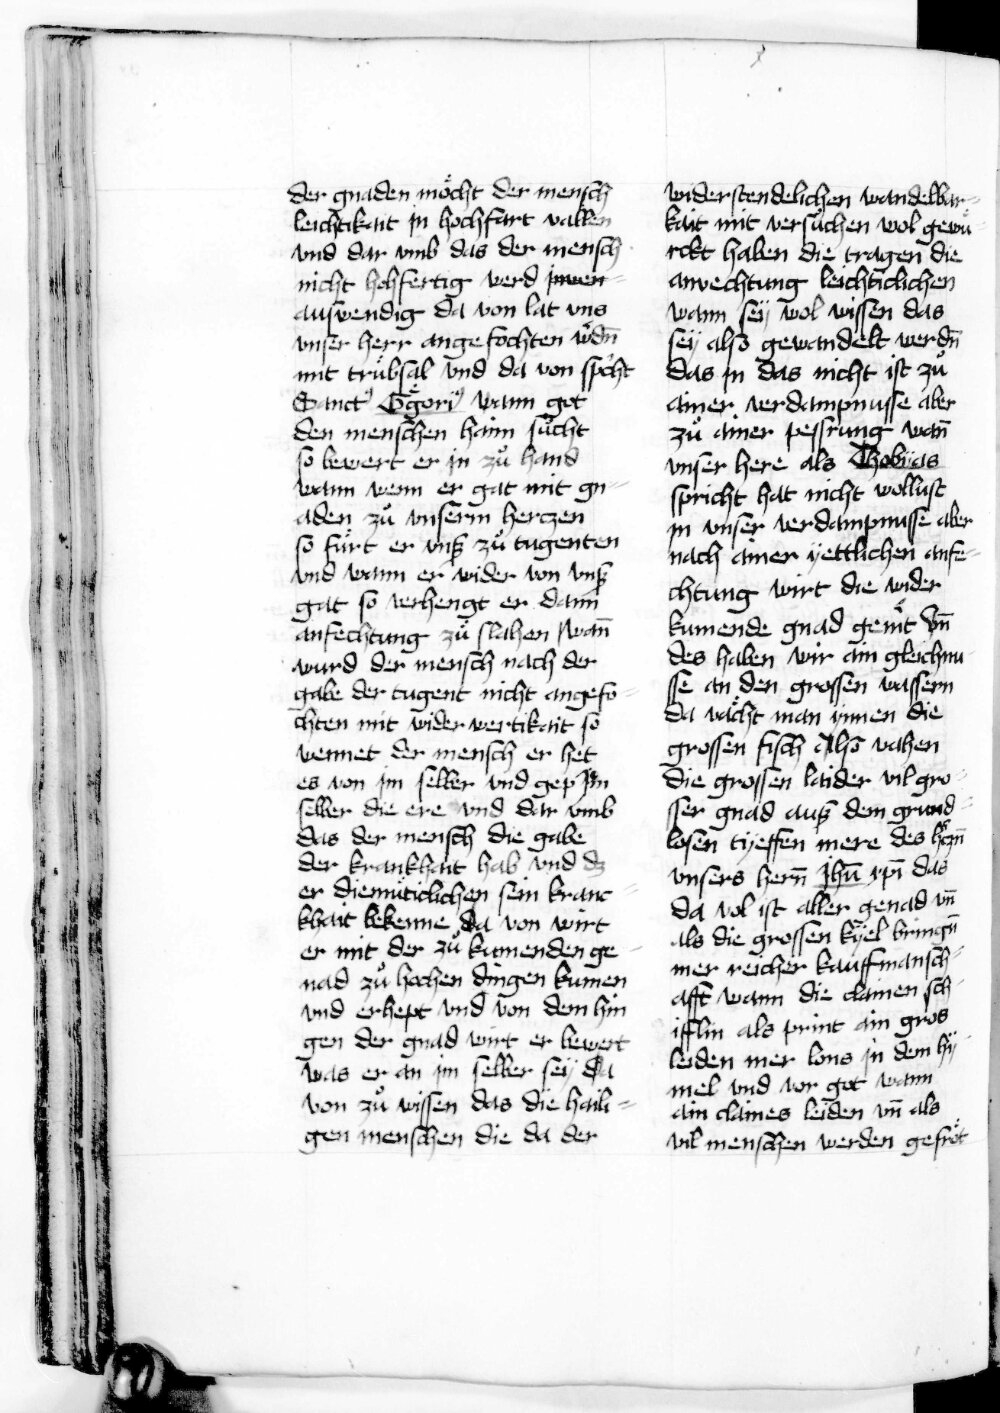 der gnaden möcht der mensch
leichtikait in hochfart vallen
vnd dar vmb das der mensch
nicht hohfertig werd inwen=
auswendig da von lat vns
vnser herr angefochten wdn̄
mit trübsal vnd da von spcht
Sanct Gḡori wann got
den menschen haim sůcht
so bewert er in zů hand
wann wenn er gat mit gn=
aden zů vnserm herczen
so fürt er vnß zů tugenten
vnd wann er wider von vnß
gat so verhengt er dann
anfechtung zů slahen wan̄
wurd der mensch nach der
gabe der tugent nicht angefo=
chten mit widerwertikait so
wennet der mensch er het
es von im selber vnd geb im
selber die ere vnd dar vmb
das der mensch die gabe
der krankhait hab vnd dz
er diemüticlichen sein kranc=
khait bekenne da von wirt
er mit der zů kumenden ge=
nad zů hochen dingen kumen
vnd erhept vnd von dem hin
gen der gnad wirt er bewert
was er an im selber sey da
von zů wissen das die haili=
gen menschen die da der
widerstendelichen wandelbar=
kait mit versůchen wol gewü=
rckt haben die tragen die
anvechtung leichticlichen
wann sey wol wissen das
sey also gewandelt werdn̄
das in das nicht ist zů
ainer verdampnusse aber
zů ainer pessrung wan̄
vnser here als Thobias
spricht hat nicht wollust
in vnser verdampnusse aber
nach ainer yettlichen anfe=
chtung wirt die wider
kumende gnad gemt vn̄
des haben wir ain gleichnu=
sse an den grossen wassern
da vächt man ynnen die
grossen fisch also vahen
die grossen laider vil gro=
sser gnad auß dem grund=
losen tyeffen mere des hczn̄
vnsers hern̄ Jhū xpī das
da vol ist aller genad vn̄
als die grossen kyel bringn̄
mer reicher kauffmansch=
afft wann die clainen sch=
ifflin als print ain gros
leiden mer lons in dem hy=
mel vnd vor got wann
ain claines leiden vn̄ als
vil menschen werden gefröt